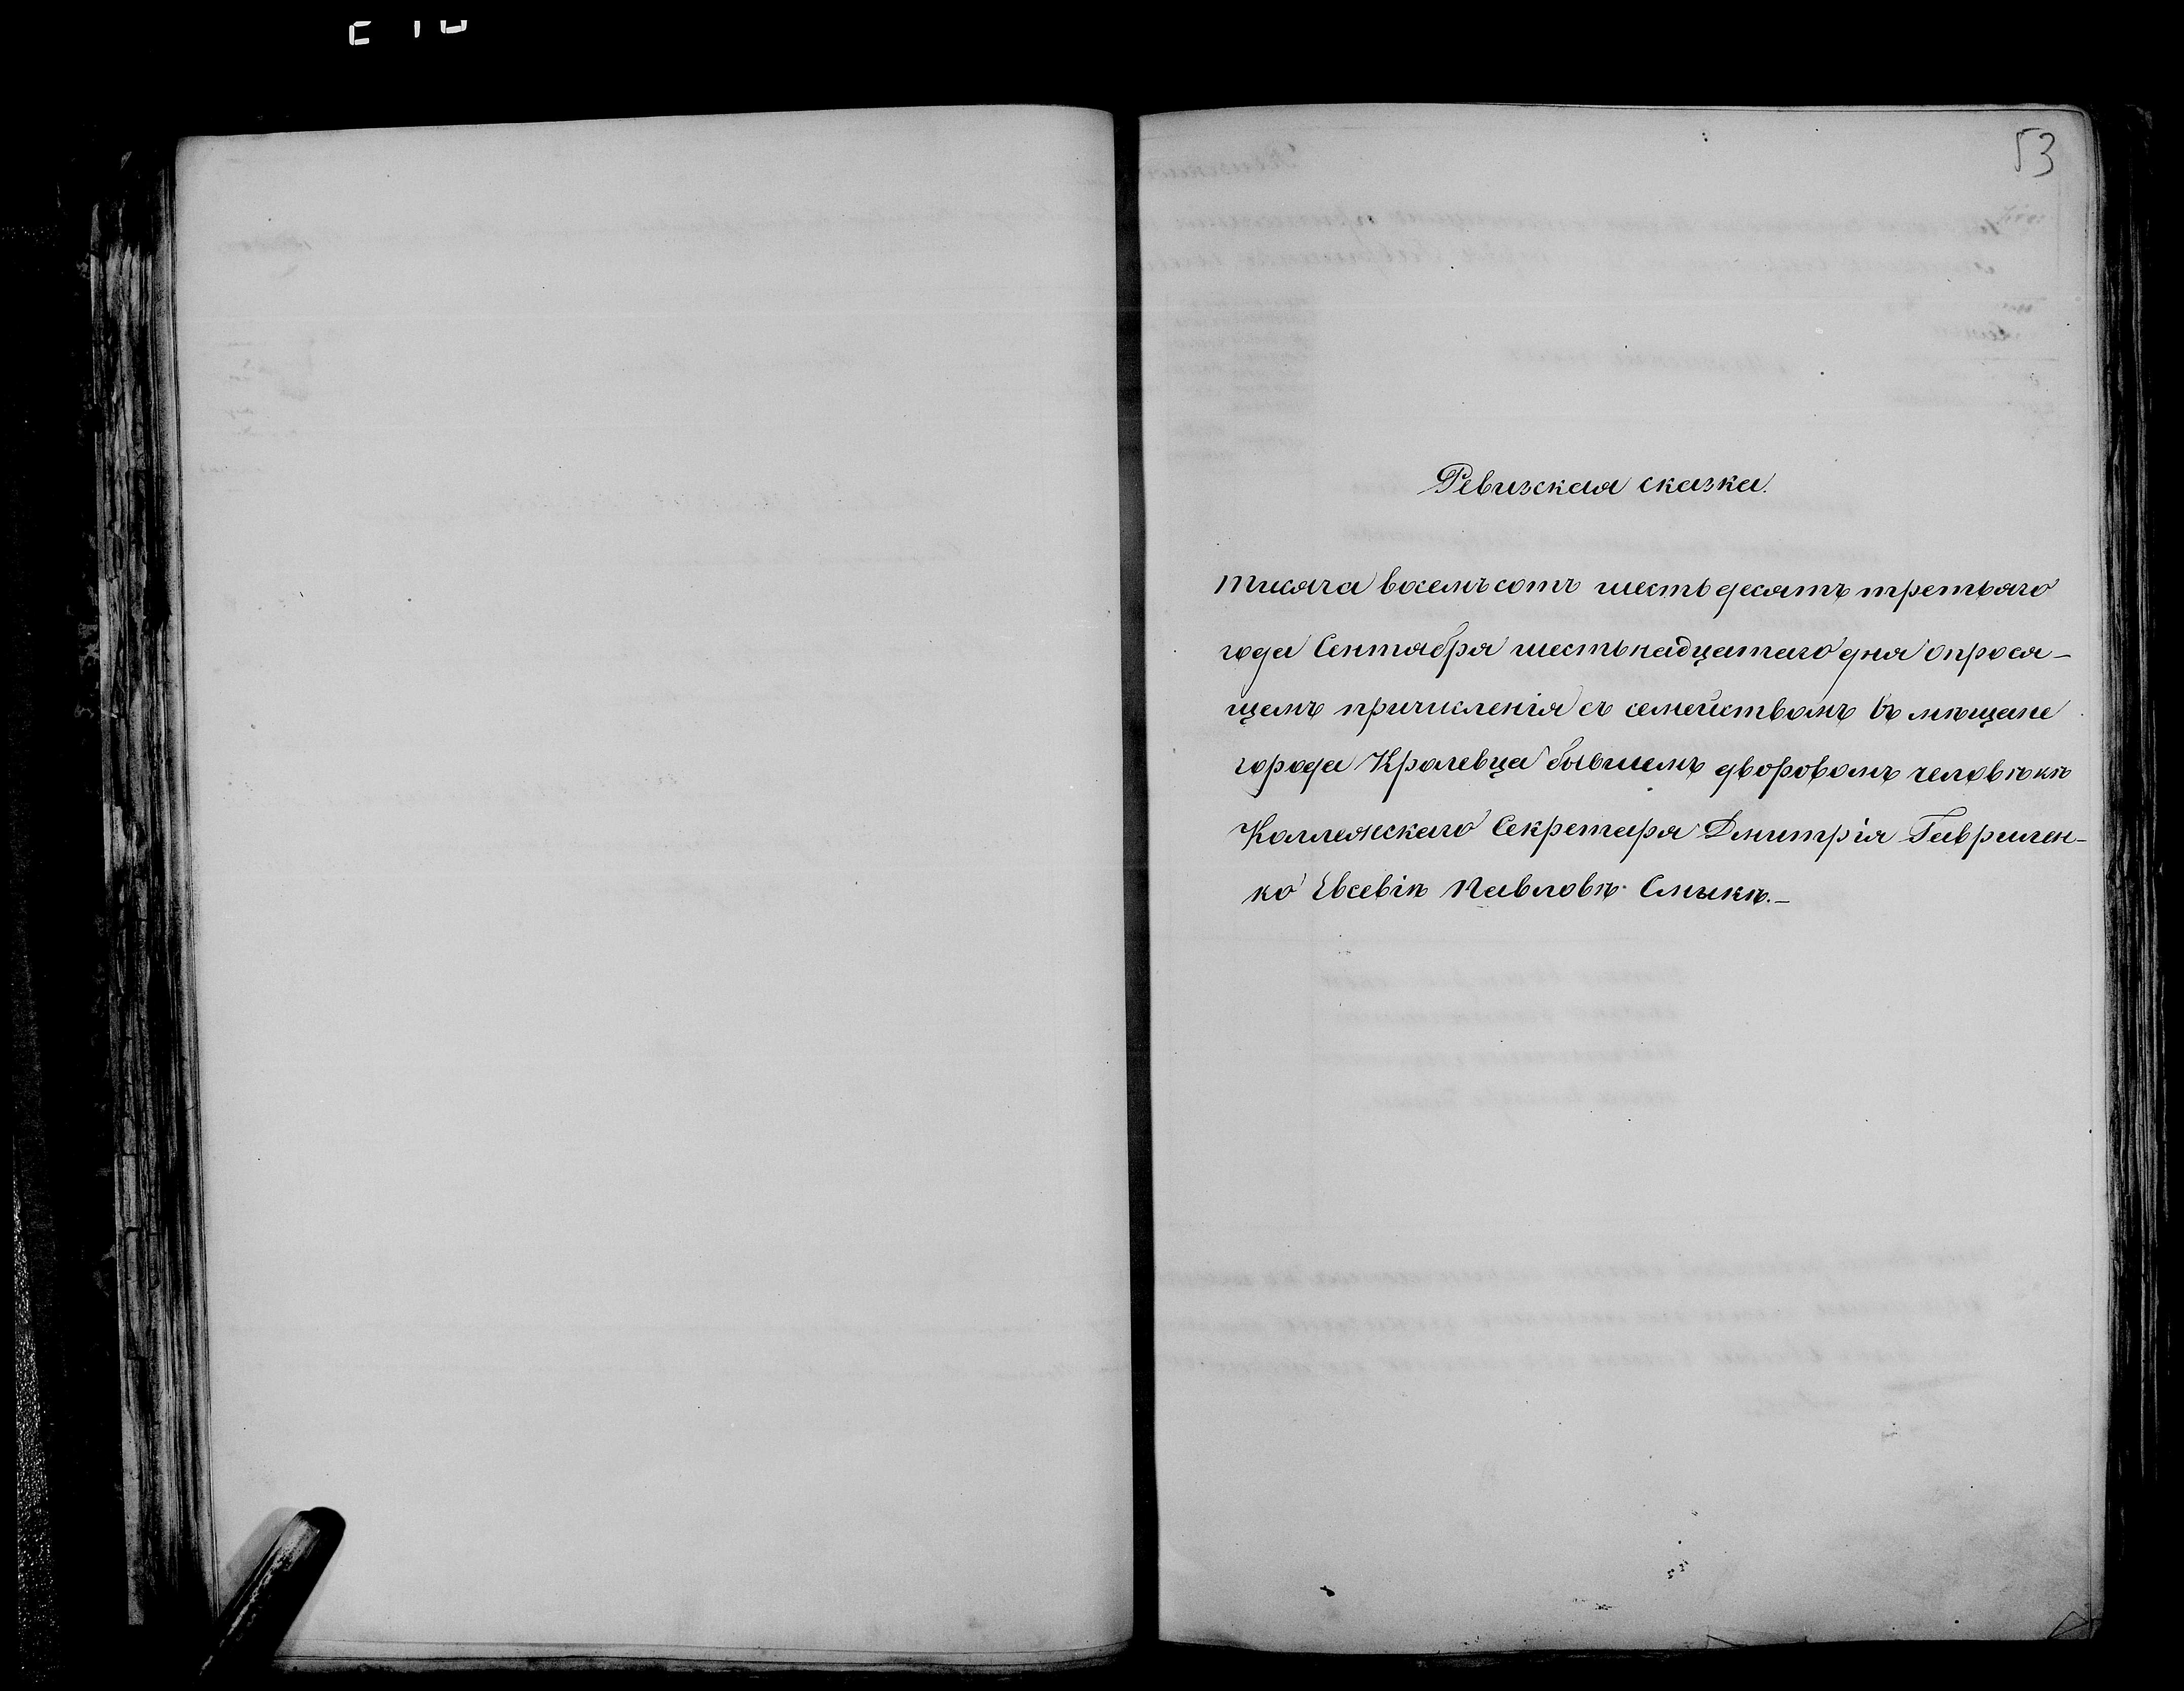 53
Ревизская сказка.
тисяча восемъсотъ шестьдесятъ третьяго
года Сентября шестьнадцатаго дня о прося-
щемъ причисленія съ семействомъ въ мѣщане
города Кролевца бывшемъ дворовомъ человѣкѣ
Коллежскаго Секретаря Дмитрія Гаврилен-
ко Евсевіѣ Павловѣ Смыкѣ.-